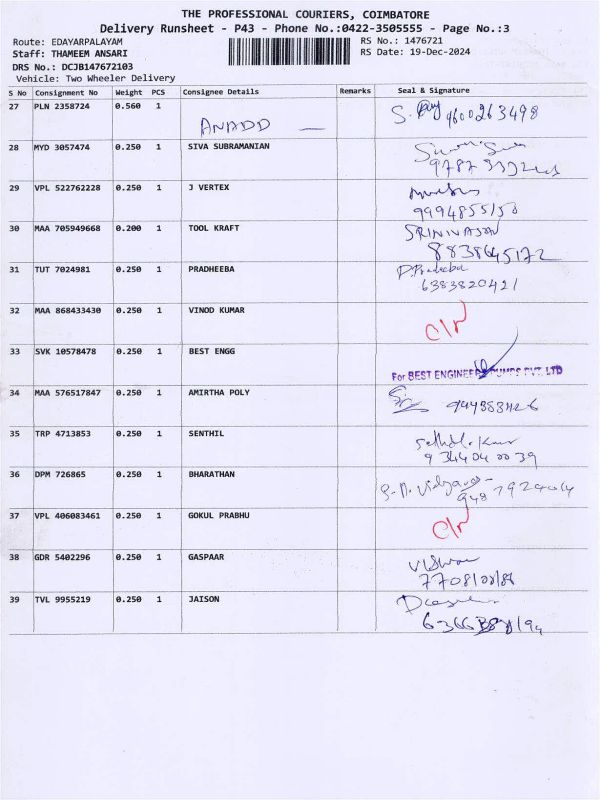 THE PROFESSIONAL COURIERS, COIMBATORE
Delivery Runsheet - P43 - Phone No.:0422-3505555 - Page No.:3
Route: EDAYARPALAYAM
RS No.: 1476721
Staff: THAMEEM ANSARI
RS Date: 19-Dec-2024
DRS No.: DCJB147672103
Vehicle: Two Wheeler Delivery
S No Consignment No Weight PCS Consignee Details Remarks Seal & Signature
27 PLN 2358724 0.560 1
S. 9600263498
28 MYD 3057474 0.250 1 SIVA SUBRAMANIAN
29 VPL 522762228 0.250 1 J VERTEX
9994855150
30 MAA 705949668 0.200 1 TOOL KRAFT SRINIVASAN
8838645172
31 TUT 7024981 0.250 1 PRADHEEBA P. Pradeeba
6383820421
32 MAA 868433430 0.250 1 VINOD KUMAR
33 SVK 10578478 0.250 1 BEST ENGG
For BEST ENGINEERS PUMPS PVT. LTD
34 MAA 576517847 0.250 1 AMIRTHA POLY
35 TRP 4713853 0.250 1 SENTHIL
9344040039
36 DPM 726865 0.250 1 BHARATHAN
37 VPL 406083461 0.250 1 GOKUL PRABHU
38 GDR 5402296 0.250 1 GASPAAR
39 TVL 9955219 0.250 1 JAISON